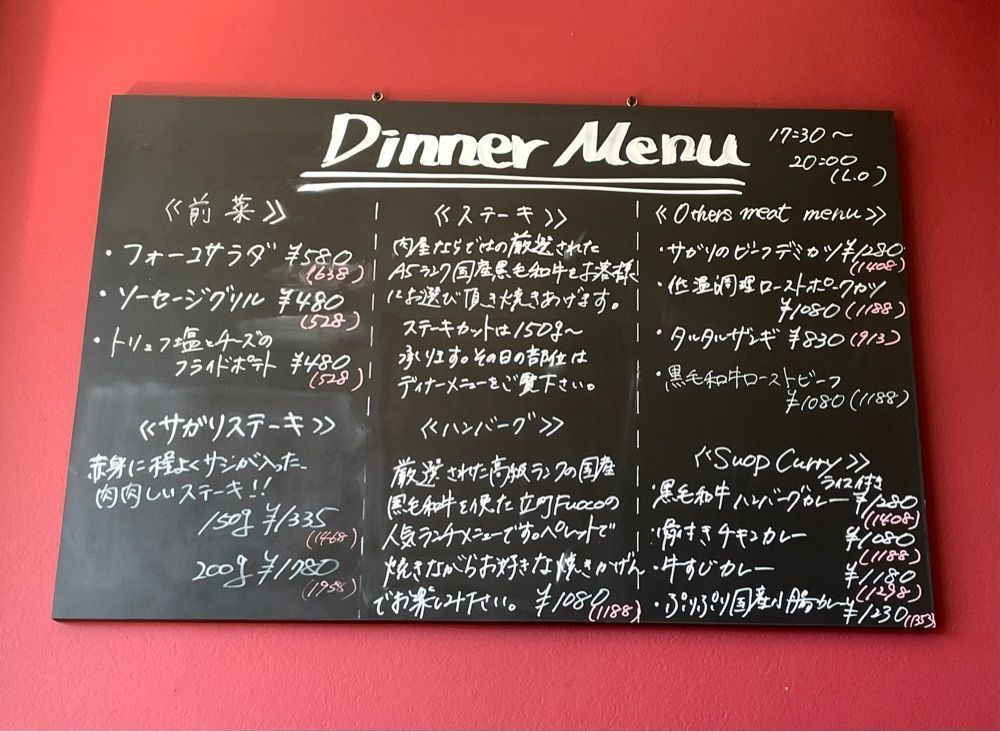 Dinner Menu
17:30〜
20:00
(L.O)
《前菜》
・フォーコサラダ ¥580
(638)
・ソーセージグリル ¥480
(528)
・トリュフ塩とチーズの
フライドポテト ¥480
(528)
《サガリステーキ》
赤身に程よくサシが入った
肉肉しいステーキ!!
150g ¥1335
(1468)
200g ¥1780
(1958)
《ステーキ》
肉屋ならではの厳選された
A5ランク国産黒毛和牛をお客様
にお選び頂き焼きあげます。
ステーキカットは150g〜
承ります。その日の部位は
ディナーメニューをご覧下さい。
《ハンバーグ》
厳選された高級ランクの国産
黒毛和牛を使った立町Fuocoの
人気ランチメニューです。ペレットで
焼きながらお好きな焼きかげん
でお楽しみ下さい。 ¥1080
(1188)
《Others meat menu》
・サガリのビーフデミカツ ¥1280
(1408)
・低温調理ローストポークカツ
¥1080 (1188)
・タルタルザンギ ¥830 (913)
・黒毛和牛ローストビーフ
¥1080 (1188)
《Suop Curry》
ライス付き
・黒毛和牛ハンバーグカレー ¥1280
(1408)
・骨付きチキンカレー ¥1080
(1188)
・牛すじカレー ¥1180
(1298)
・ぷりぷり国産小腸カレー ¥1230 (1353)